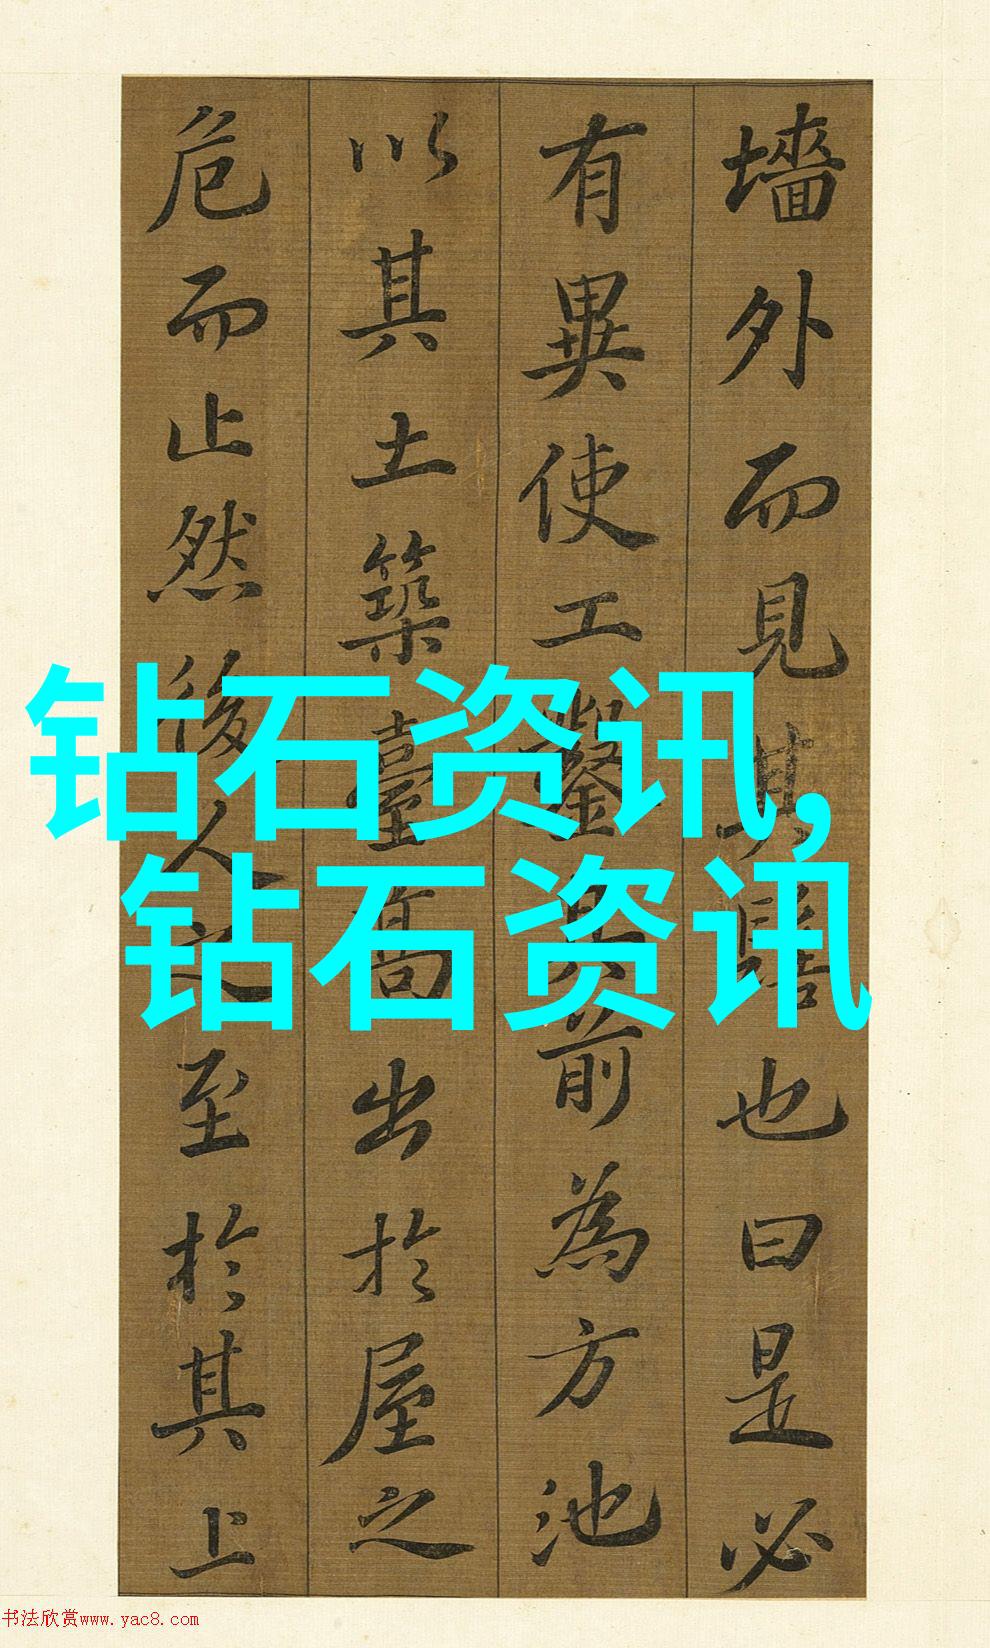 墻外而見其髻也曰是必
有異使工鑿其前為方池
以其土築臺高出於屋之
危而止然後人之至於其上
钻石资讯,
钻石资讯
书法欣赏www.yac8.com